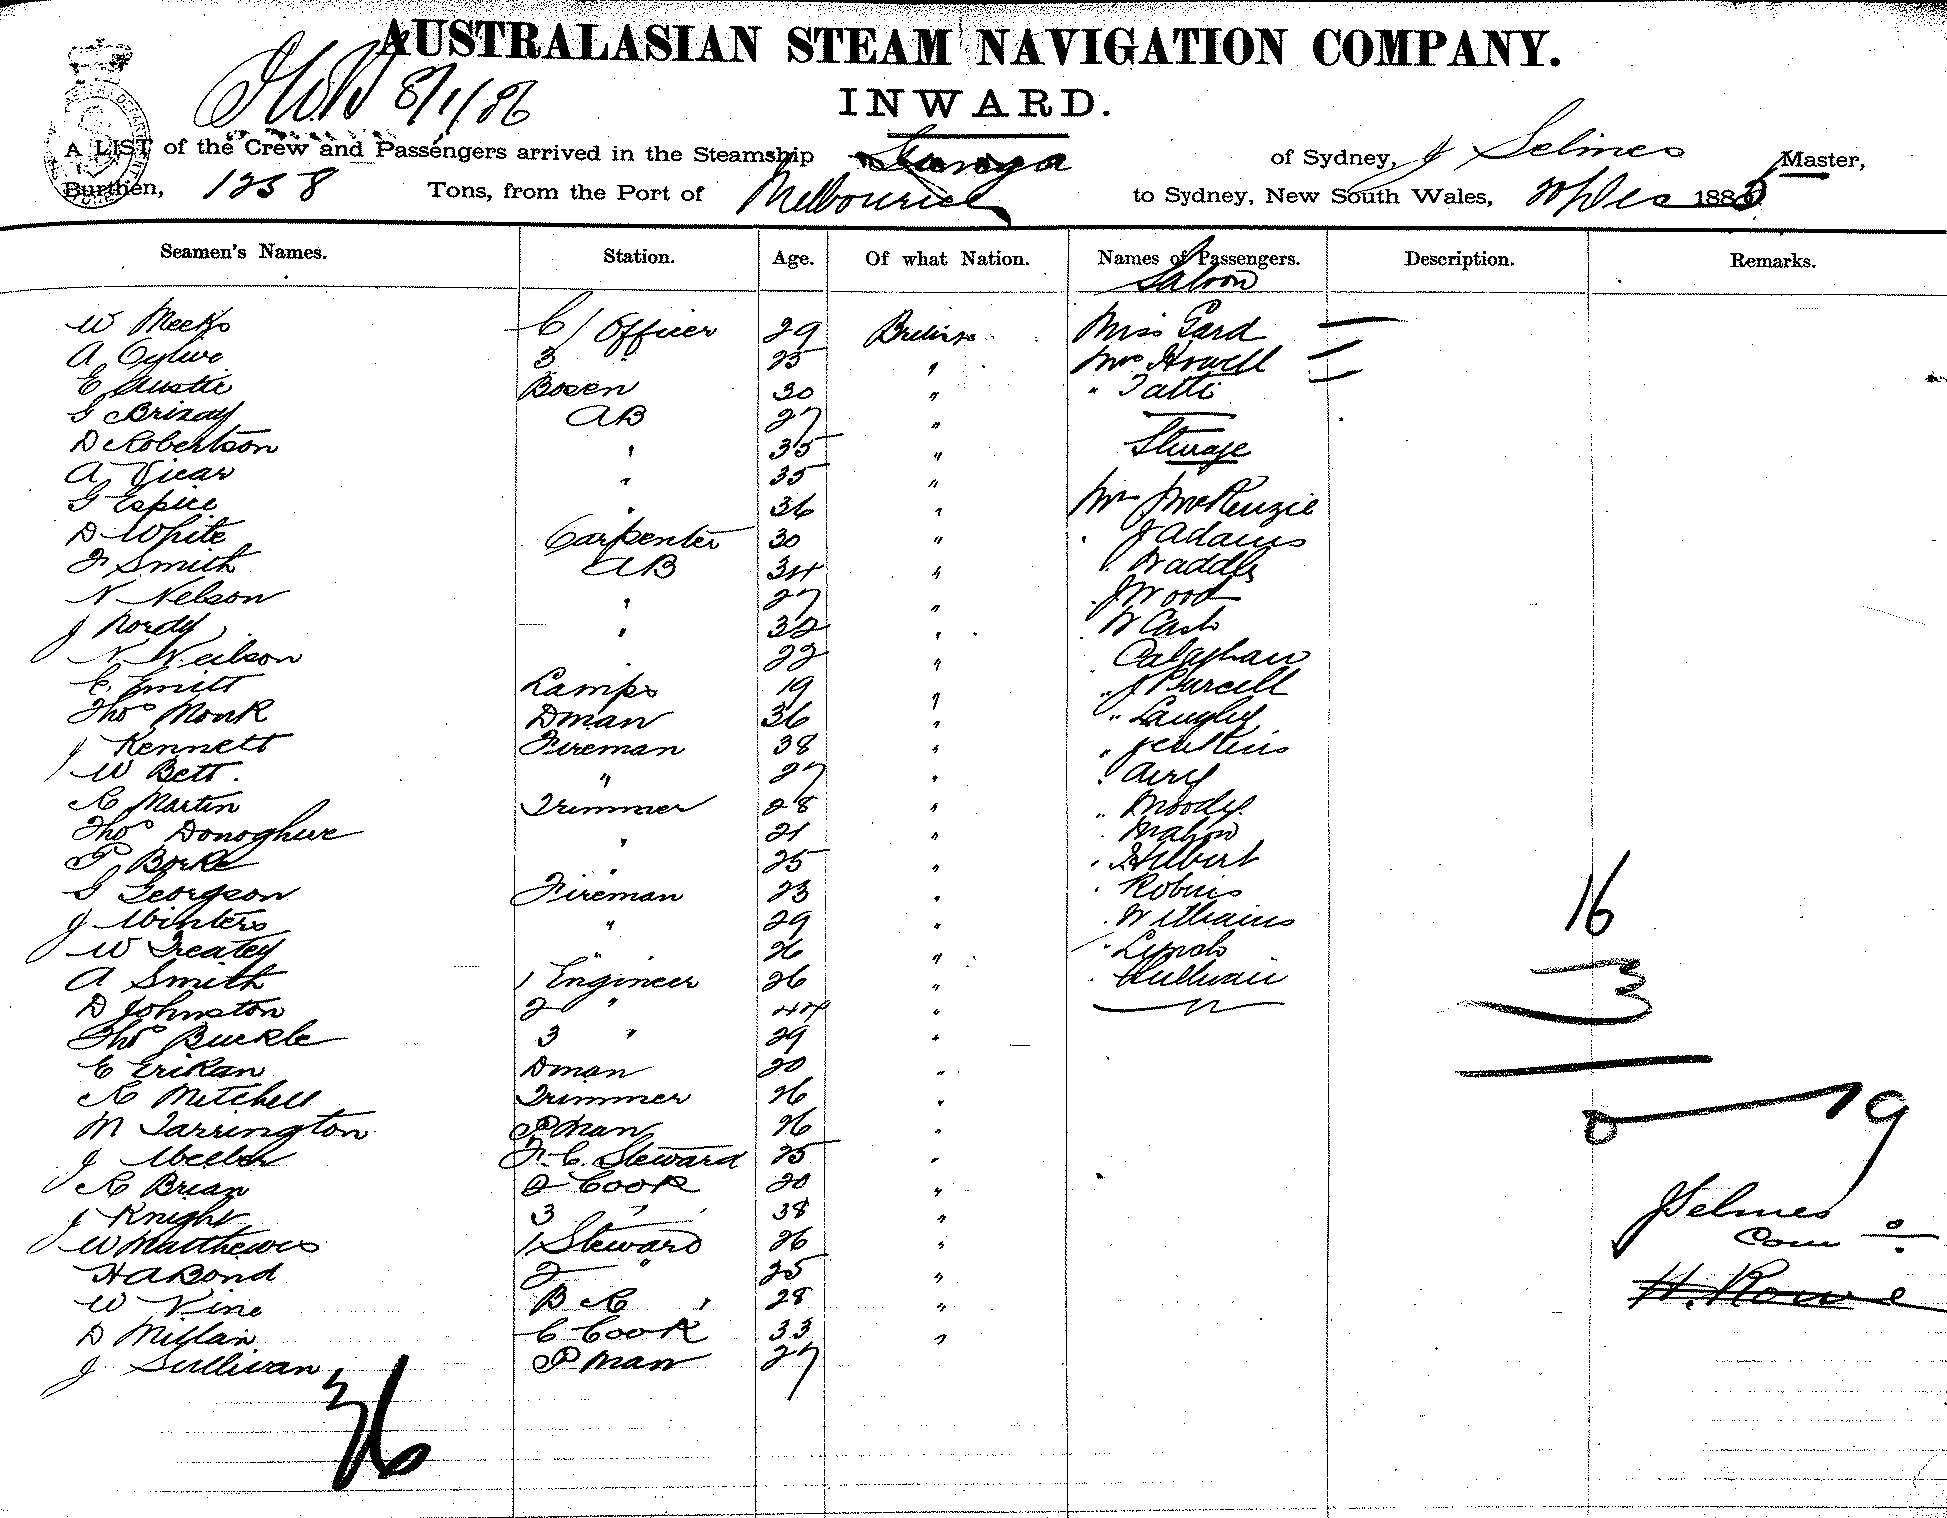 AUSTRALASIAN STEAM NAVIGATION COMPANY.
8/1/86
INWARD.
A LIST of the Crew and Passengers arrived in the Steamship of Sydney, J Selmes Master,
Burthen, 1258 Tons, from the Port of Melbourne to Sydney, New South Wales, Dec 1885
Seamen's Names. Station. Age. Of what Nation. Names of Passengers. Description. Remarks.
Saloon
W Meeks C/ Officer 29 British Miss Gard
A 3 25 " Mrs Howell
E Austie Bosen 30 " " Tatti
G Brizay AB 27 "
D Robertson " 35 " Sterage
A Vicar " 35 "
G Espice " 36 " Mr J McKenzie
D White Carpenter 30 " " J Adams
F Smith AB 34 " " Waddly
N Nelson " 27 " " J Wood
J Nordy " 32 " " W Cash
N Neilson 22 " " Calaghan
C. Smitt Lamps 19 " " J Purcell
Thos Monk Dman 36 " " Langley
J Kennett Fireman 38 " " Jenkins
W Bett. " 27 " " Airy
R Martin Trimmer 28 " " Moody
Thos Donoghue " 21 " " Mahon
P Borke " 25 " " Hilbert
G Georgeson Fireman 23 " " Robins
J Winters " 29 " " Williams
W Treatey " 26 " " Lynch
A Smith 1 Engineer 26 " " Sullivan
D Johnston 2 " 44 "
Thos Buckle 3 " 29 "
E Erikan Dman 20 "
R Mitchell Trimmer 26 "
M Tarrington P Man 26 "
J Weeber F. C. Steward 25 "
R Brian 2 Cook 20 "
J Knight 3 " 38 "
W Matthews 1 Steward 26 "
H A Bond 2 " 25 "
W Vine B R " 28 "
D Millan C Cook 33 "
J Sullivan P Man 27
36
16
3
19
J Selmes
Com
H. Rowe